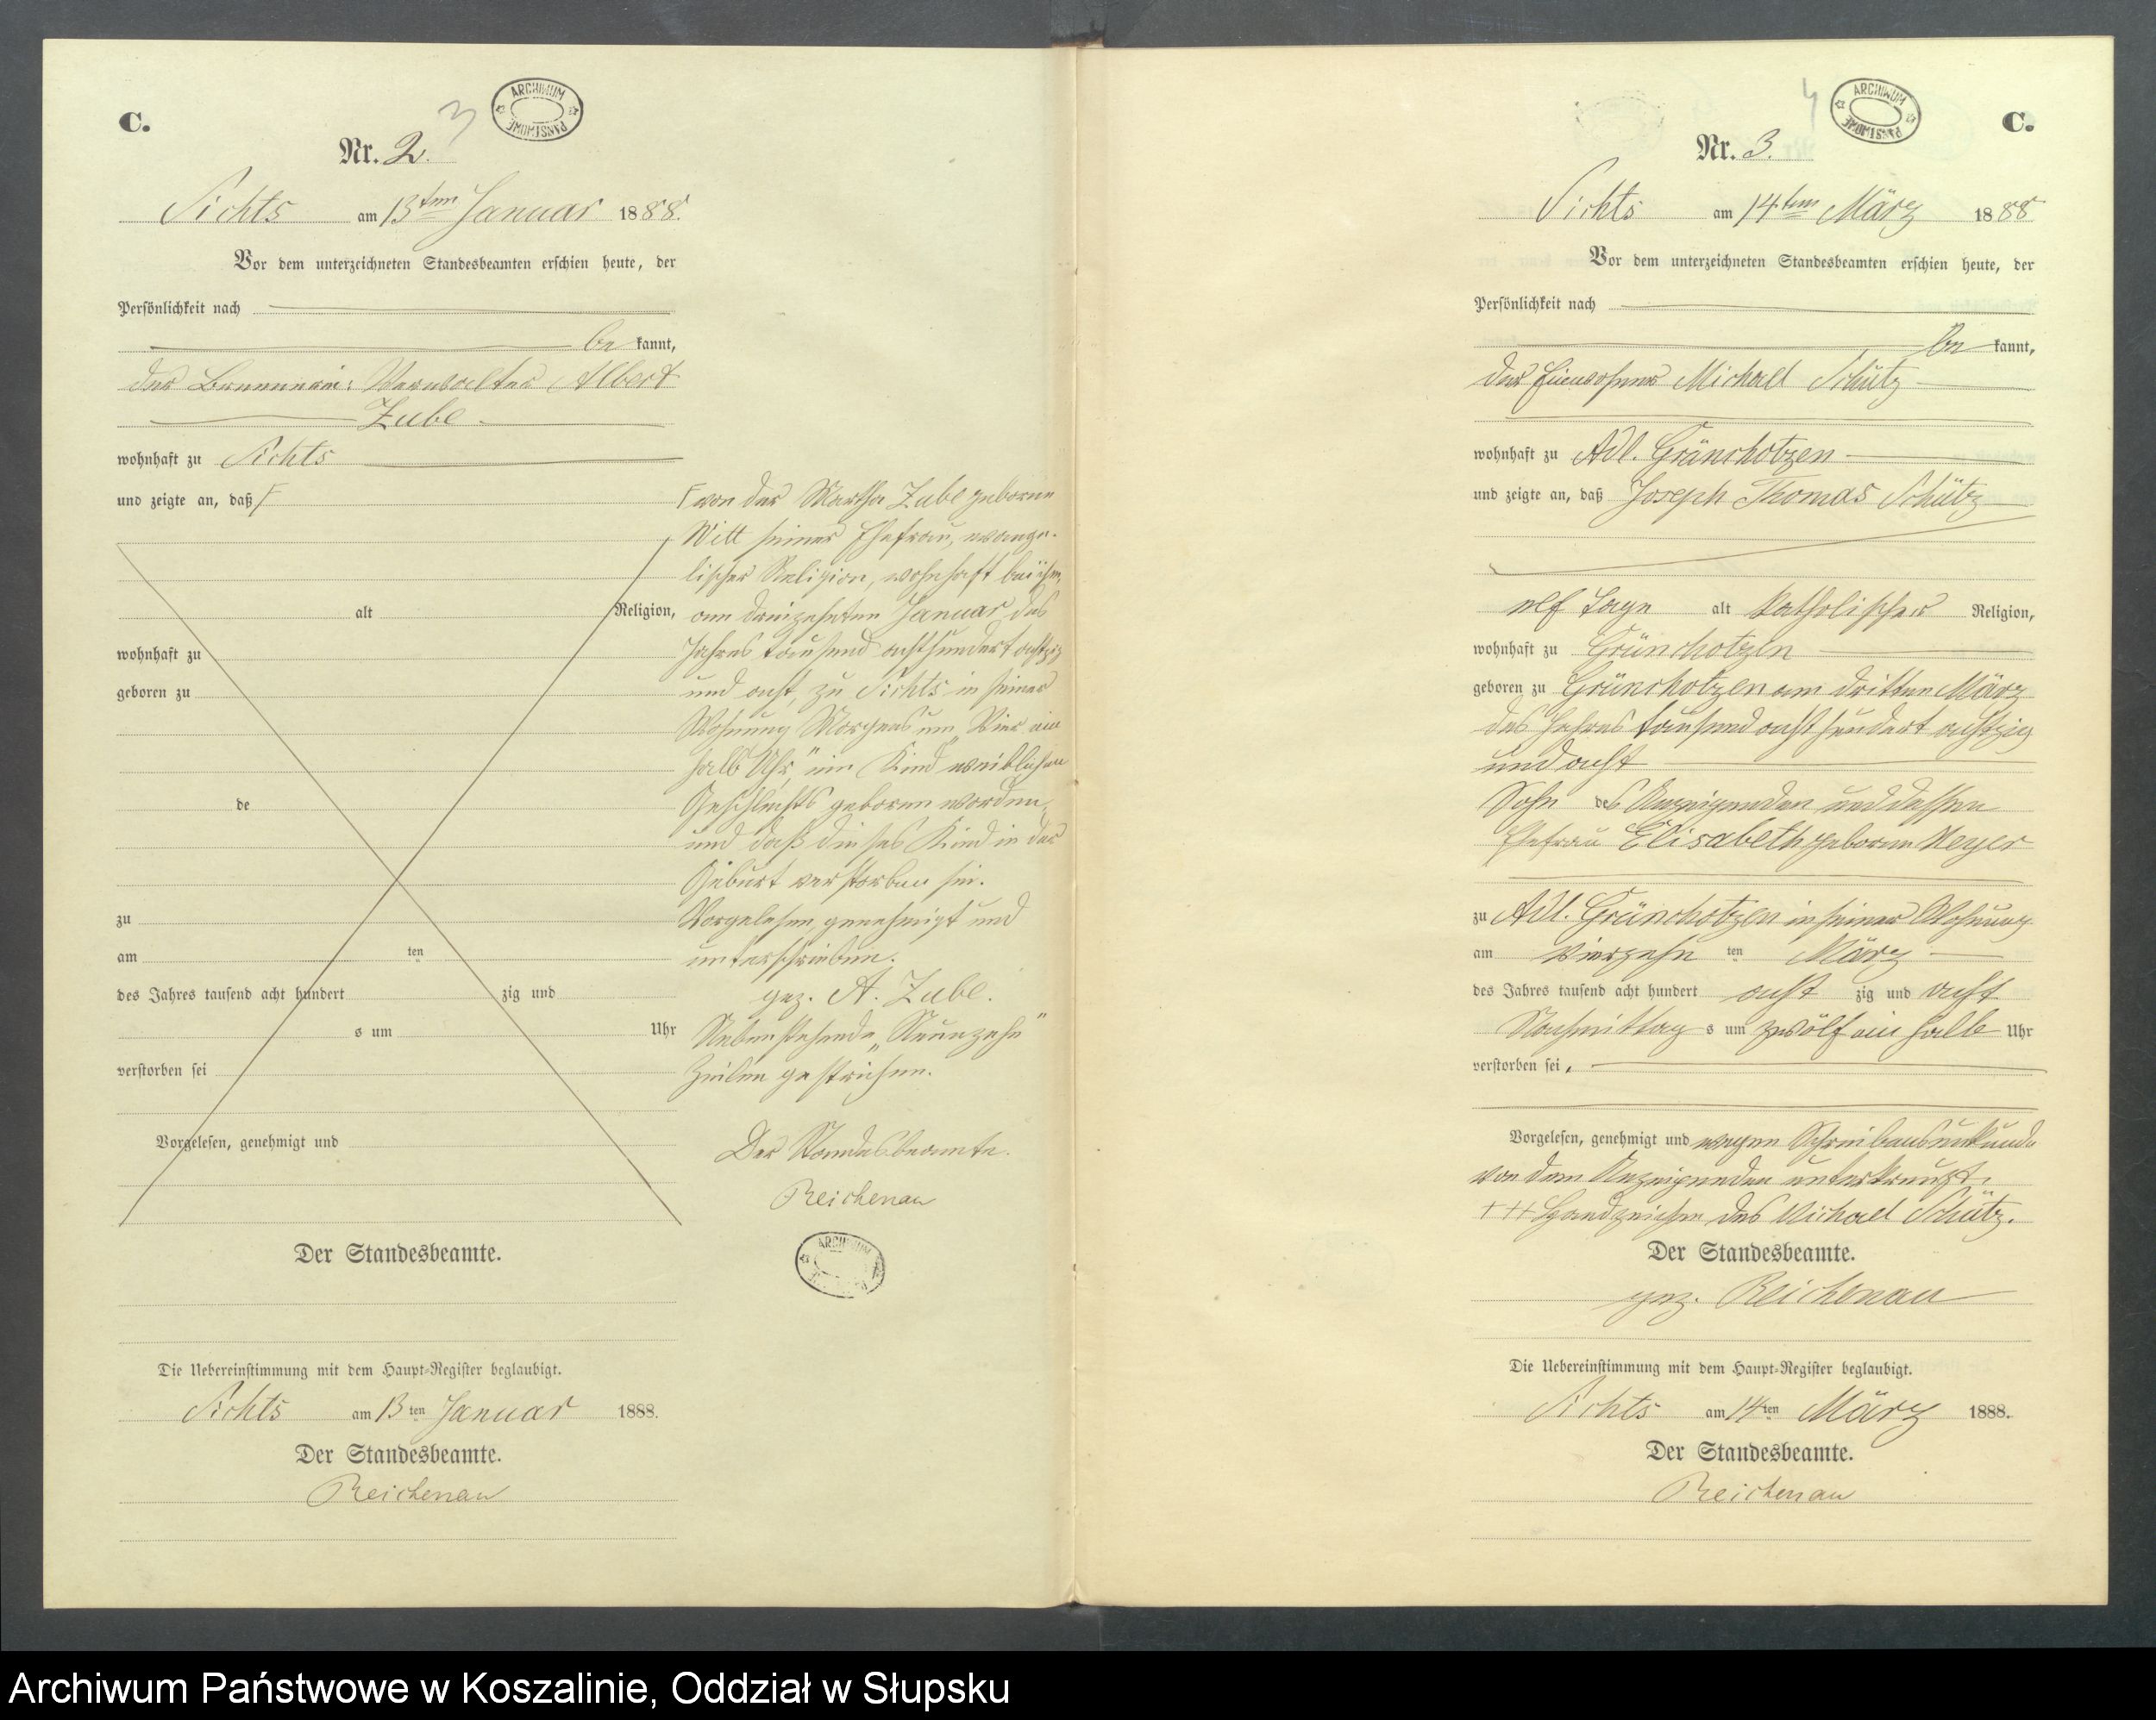 C.
3
ARCHIWUM PAŃSTWOWE
Nr. 2.
Sichts am 13ten Januar 1888.
Vor dem unterzeichneten Standesbeamten erschien heute, der
Persönlichkeit nach
be kannt,
der Brennerei: Verwalter Albert
Zube
wohnhaft zu Sichts
und zeigte an, daß F
alt Religion,
wohnhaft zu
geboren zu
de
zu
am ten
des Jahres tausend acht hundert zig und
s um Uhr
verstorben sei
Vorgelesen, genehmigt und
F von der Martha Zube geborene
Witt seiner Ehefrau, evange-
lischer Religion, wohnhaft bei ihm,
am dreizehnten Januar des
Jahres tausend achthundert achtzig
und acht, zu Sichts in seiner
Wohnung Morgens um „Vier ein
halb Uhr" ein Kind weiblichen
Geschlechts geboren worden,
und daß dieses Kind in der
Geburt verstorben sei.
Vorgelesen, genehmigt und
unterschrieben.
gez. A. Zube.
Nebenstehende „Neunzehn"
Zeilen gestrichen.
Der Standesbeamte.
Reichenau
ARCHIWUM
Der Standesbeamte.
Die Uebereinstimmung mit dem Haupt-Register beglaubigt.
Sichts am 13ten Januar 1888.
Der Standesbeamte.
Reichenau
4
ARCHIWUM PAŃSTWOWE
C.
Nr. 3.
Sichts am 14ten März 1888
Vor dem unterzeichneten Standesbeamten erschien heute, der
Persönlichkeit nach
be kannt,
der Einwohner Michael Schütz
wohnhaft zu Adl. Grünchotzen
und zeigte an, daß Joseph Thomas Schütz
elf Tage alt katholischer Religion,
wohnhaft zu Grünchotzen
geboren zu Grünchotzen am dritten März
des Jahres tausend acht hundert achtzig
und acht
Sohn des Anzeigenden und dessen
Ehefrau Elisabeth geborene Meyer
zu Adl. Grünchotzen in seiner Wohnung
am vierzehn ten März
des Jahres tausend acht hundert acht zig und acht
Nachmittag s um zwölf ein halb Uhr
verstorben sei.
Vorgelesen, genehmigt und wegen Schreibensunkunde
von dem Anzeigenden unterkreuzt.
+++ Handzeichen des Michael Schütz.
Der Standesbeamte.
gez. Reichenau
Die Uebereinstimmung mit dem Haupt-Register beglaubigt.
Sichts am 14ten März 1888.
Der Standesbeamte.
Reichenau
Archiwum Państwowe w Koszalinie, Oddział w Słupsku